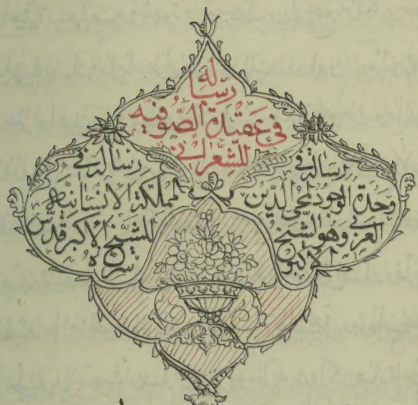 رسالة
في عقيدة الصوفيه
للشعراني
رسالة في
وحدة الوجود لمحي الدين
العربي وهو الشيخ
الاكبر
رسالة في
المملكة الانسانية
للشيخ الاكبر قدس
سره